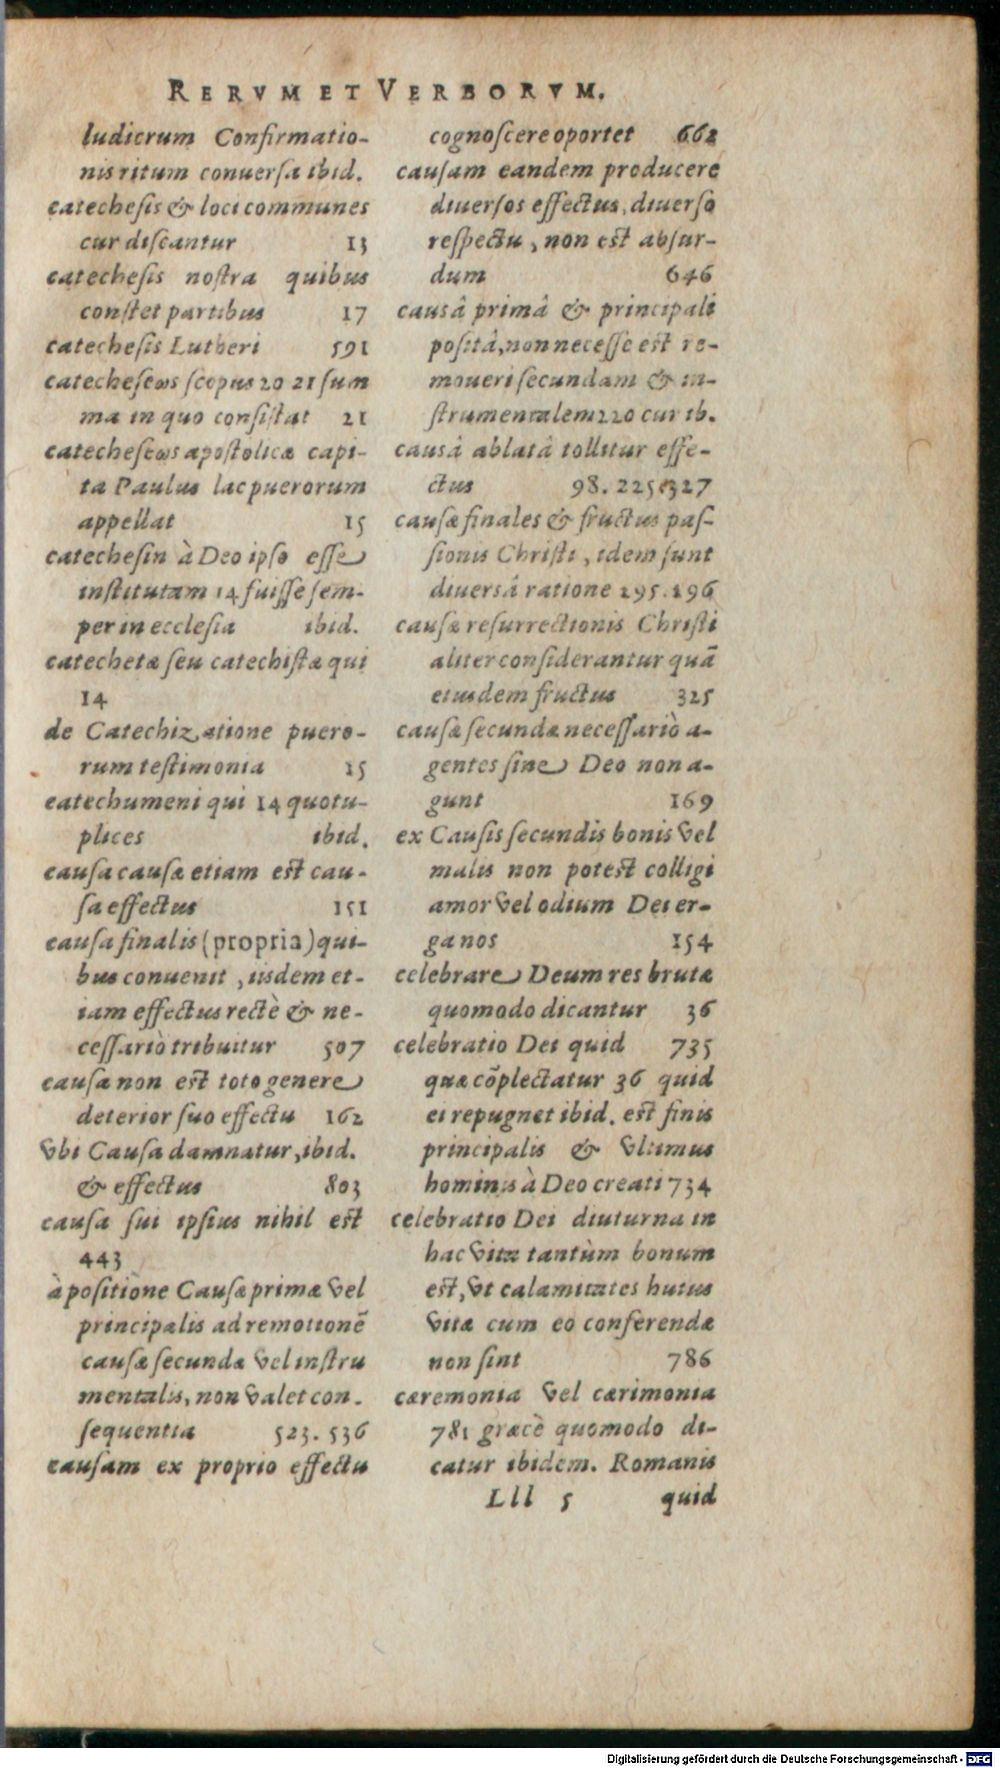 RERVM ET VERBORVM.
ludicrum Confirmatio-
nis ritum conuersa ibid.
catechesis & loci communes
cur discantur 13
catechesis nostra quibus
constet partibus 17
catechesis Lutheri 591
catecheseωs scopus 20 21 sum
ma in quo consistat 21
catecheseωs apostolicæ capi-
ta Paulus lac puerorum
appellat 15
catechesin à Deo ipso esse
institutam 14 fuisse sem-
per in ecclesia ibid.
catechetæ seu catechistæ qui
14
de Catechizatione puero-
rum testimonia 15
catechumeni qui 14 quotu-
plices ibid.
causa causæ etiam est cau-
sa effectus 151
causa finalis (propria) qui-
bus conuenit, iisdem et-
iam effectus rectè & ne-
cessariò tribuitur 507
causa non est toto genere
deterior suo effectu 162
vbi Causa damnatur, ibid.
& effectus 803
causa sui ipsius nihil est
443
à positione Causæ primæ vel
principalis ad remotionē
causæ secundæ vel instru
mentalis, non valet con-
sequentia 523. 536
causam ex proprio effectu
cognoscere oportet 662
causam eandem producere
diuersos effectus, diuerso
respectu, non est absur-
dum 646
causâ primâ & principali
positâ, non necesse est re-
moueri secundam & in-
strumentalem 220 cur ib.
causâ ablatâ tollitur effe-
ctus 98. 225 327
causæ finales & fructus pas-
sionis Christi, idem sunt
diuersâ ratione 295. 296
causæ resurrectionis Christi
aliter considerantur quā
eiusdem fructus 325
causæ secundæ necessariò a-
gentes sine Deo non a-
gunt 169
ex Causis secundis bonis vel
malis non potest colligi
amor vel odium Dei er-
ga nos 154
celebrare Deum res brutæ
quomodo dicantur 36
celebratio Dei quid 735
quæ cōplectatur 36 quid
ei repugnet ibid. est finis
principalis & vltimus
hominis à Deo creati 734
celebratio Dei diuturna in
hac vita tantùm bonum
est, vt calamitates huius
vitæ cum eo conferendæ
non sint 786
cæremonia vel cærimonia
781 græcè quomodo di-
catur ibidem. Romanis
Lll 5 quid
Digitalisierung gefördert durch die Deutsche Forschungsgemeinschaft - DFG